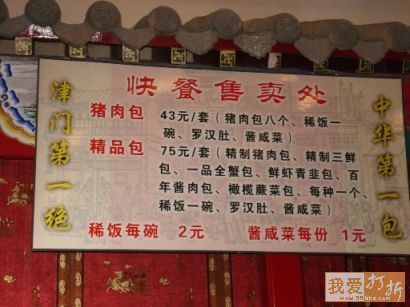 快餐售卖处
津门第一绝
中华第一包
猪肉包 43元/套（猪肉包八个、稀饭一
碗、罗汉肚、酱咸菜）
精品包 75元/套（精制猪肉包、精制三鲜
包、一品全蟹包、鲜虾青韭包、百
年酱肉包、橄榄蕨菜包、每种一个、
稀饭一碗、罗汉肚、酱咸菜）
稀饭每碗 2元 酱咸菜每份 1元
我爱打折
www.55bbs.com